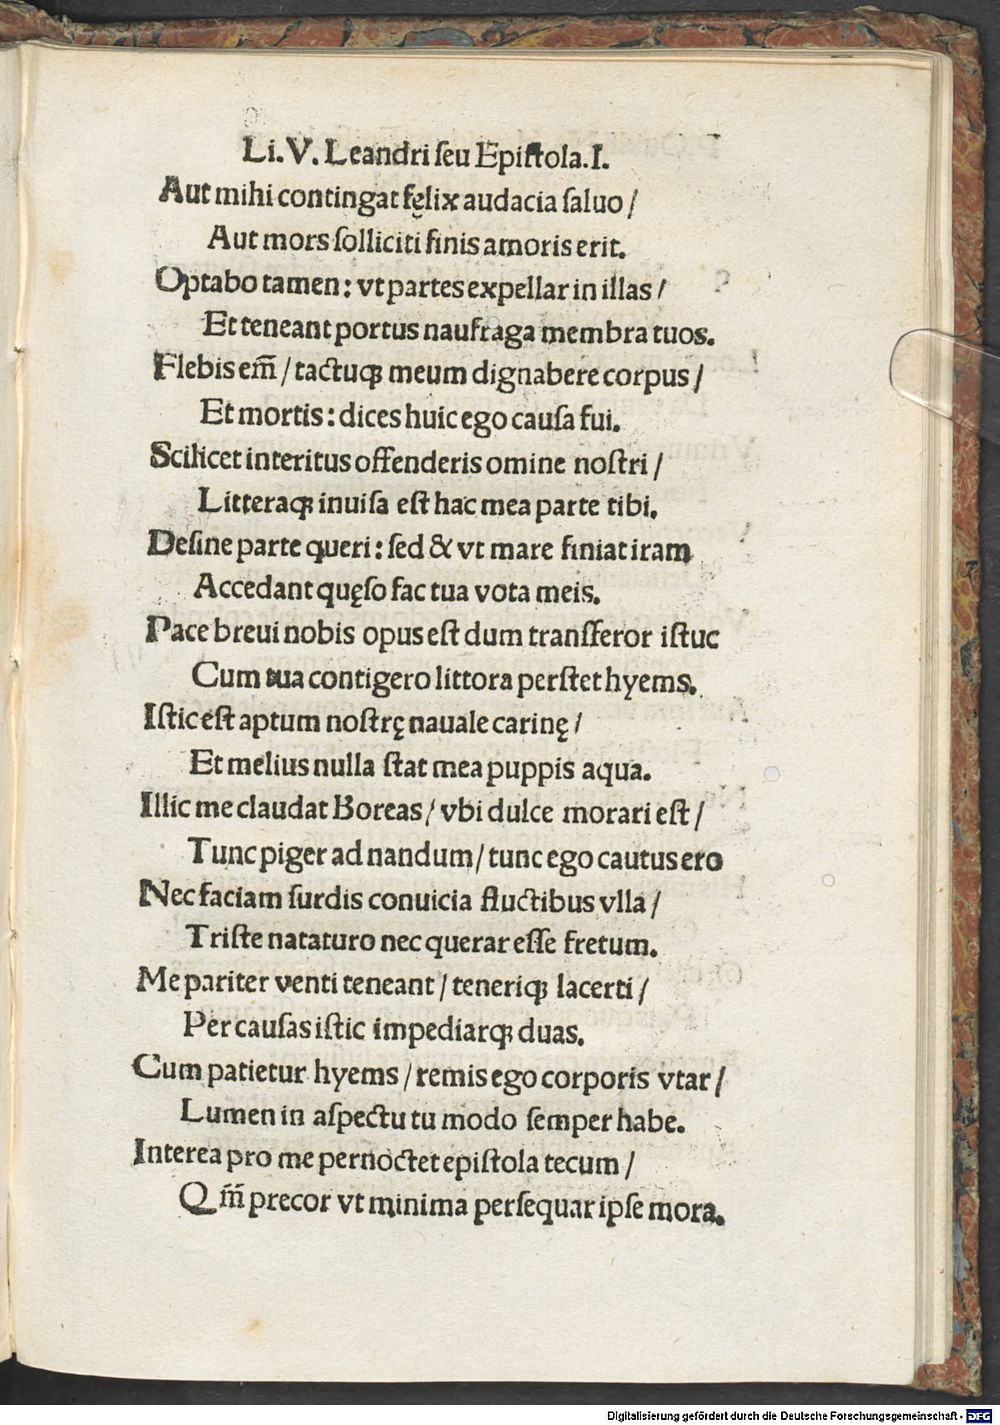 Li. V. Leandri seu Epistola. I.
Aut mihi contingat fęlix audacia saluo /
Aut mors solliciti finis amoris erit.
Optabo tamen: vt partes expellar in illas /
Et teneant portus naufraga membra tuos.
Flebis em̃ / tactuqꝫ meum dignabere corpus /
Et mortis: dices huic ego causa fui.
Scilicet interitus offenderis omine nostri /
Litteraqꝫ inuisa est hac mea parte tibi.
Desine parte queri: sed & vt mare finiat iram
Accedant quęso fac tua vota meis.
Pace breui nobis opus est dum transferor istuc
Cum tua contigero littora perstet hyems.
Istic est aptum nostrę nauale carinę /
Et melius nulla stat mea puppis aqua.
Illic me claudat Boreas / vbi dulce morari est /
Tunc piger ad nandum / tunc ego cautus ero
Nec faciam surdis conuicia fluctibus vlla /
Triste nataturo nec querar esse fretum.
Me pariter venti teneant / teneriqꝫ lacerti /
Per causas istic impediarqꝫ duas.
Cum patietur hyems / remis ego corporis vtar /
Lumen in aspectu tu modo semper habe.
Interea pro me pernoctet epistola tecum /
Qm̃ precor vt minima persequar ipse mora.
Digitalisierung gefördert durch die Deutsche Forschungsgemeinschaft - DFG